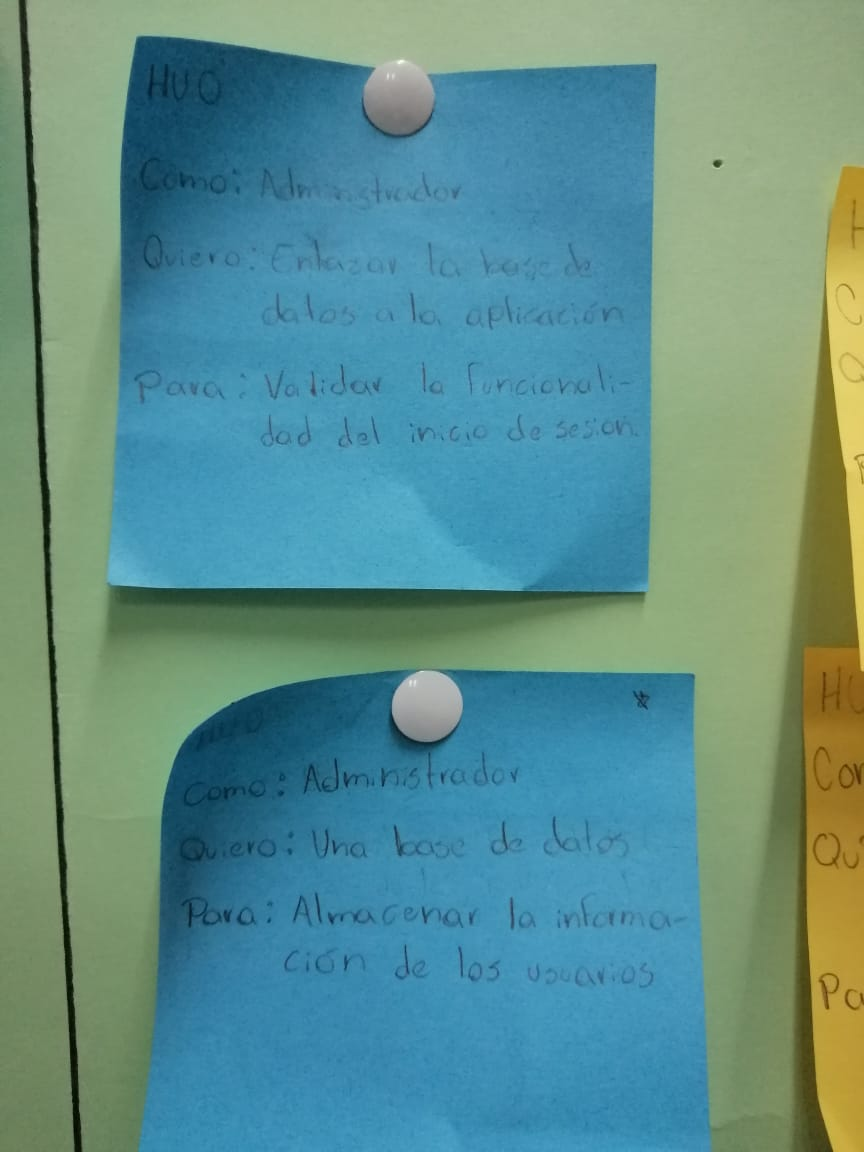 HU0
Como: Administrador
Quiero: Enlazar la base de
datos a la aplicación
Para: Validar la funcionali-
dad del inicio de sesion.
HU0
Como: Administrador
Quiero: Una base de datos
Para: Almacenar la informa-
ción de los usuarios
H
C
Q
HU
Com
Qui
Pa